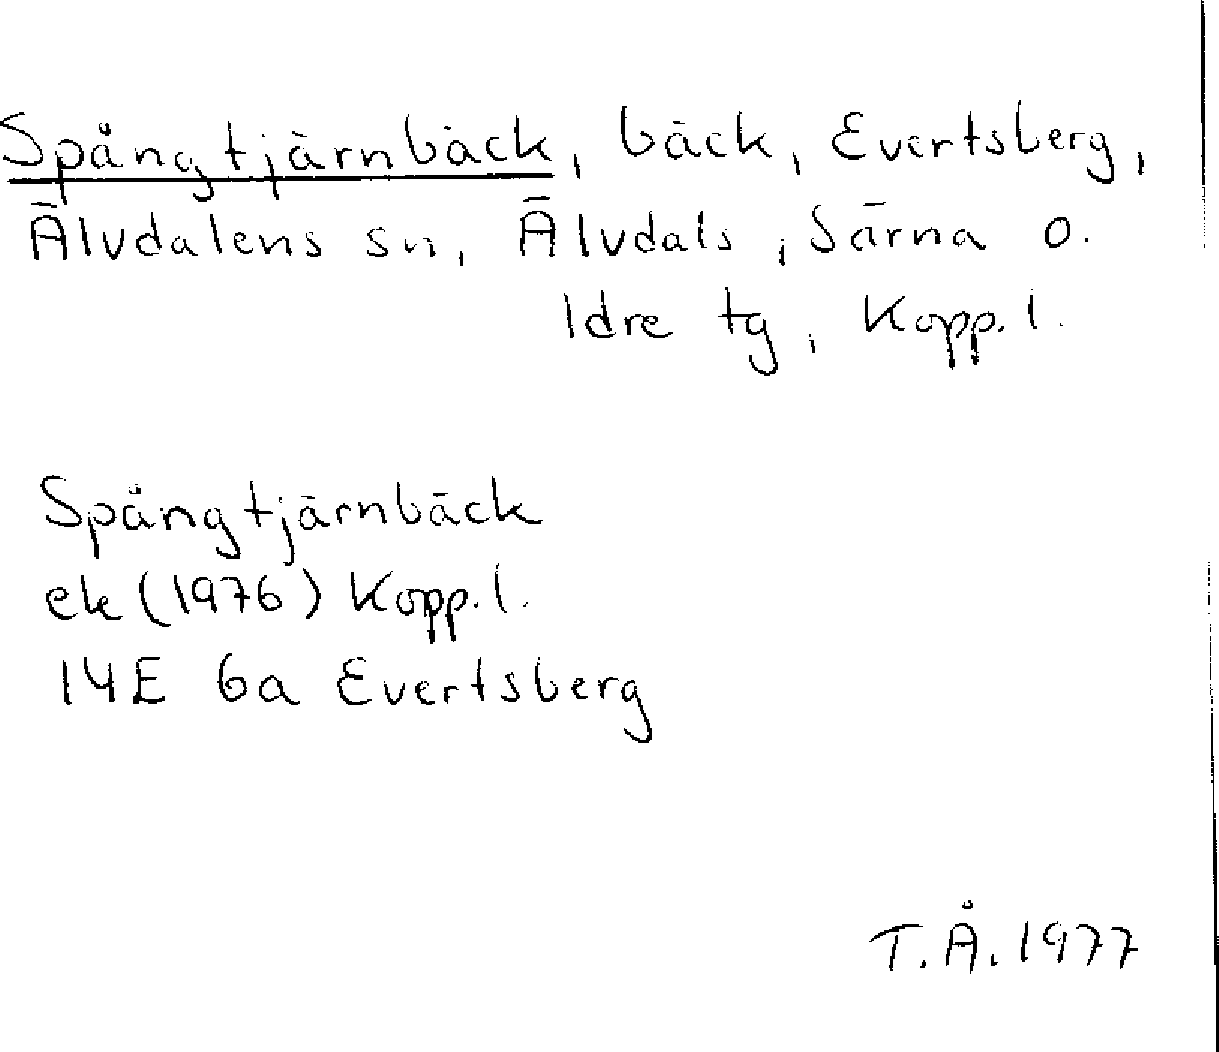 Spångtjärnbäck, bäck, Evertsberg,
Älvdalens sn, Älvdals, Särna o.
Idre tg, Kopp. l.
Spångtjärnbäck
ek (1976) Kopp. l.
14E 6a Evertsberg
T.Å. 1977